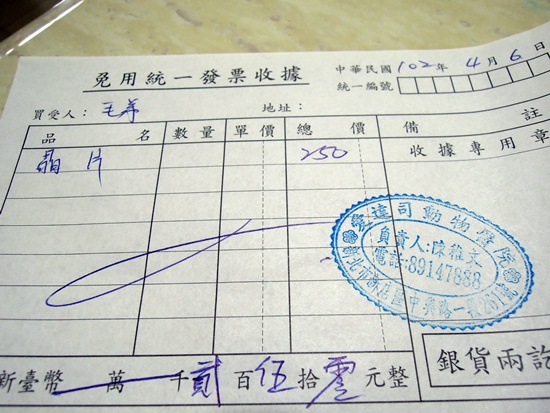 免用統一發票收據
中華民國102年4月6日
統一編號
買受人： 地址：
品名 數量 單價 總價 備註
晶片 250
收據專用章
司動物醫院
負責人:陳雅文
電話:89147888
新臺幣 萬 千貳百伍拾零元整
銀貨兩訖